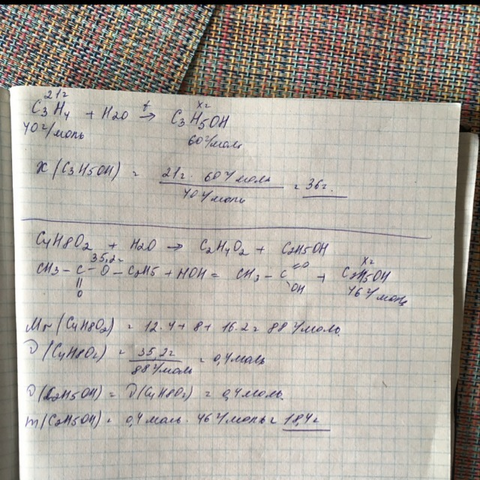 21г хг
C3H4 + H2O t→ C3H5OH
40г/моль 60г/моль
x(C3H5OH) = 21г · 60г/моль / 40г/моль = 36г.
C4H8O2 + H2O → C2H4O2 + C2H5OH
35,2г хг
CH3-C-O-C2H5 + HOH = CH3-C=O + C2H5OH
O OH 46г/моль
Mr(C4H8O2) = 12·4+8+16·2= 88г/моль.
ν(C4H8O2) = 35,2г / 88г/моль = 0,4моль
ν(C2H5OH) = ν(C4H8O2) = 0,4моль.
m(C2H5OH) = 0,4моль · 46г/моль= 18,4г